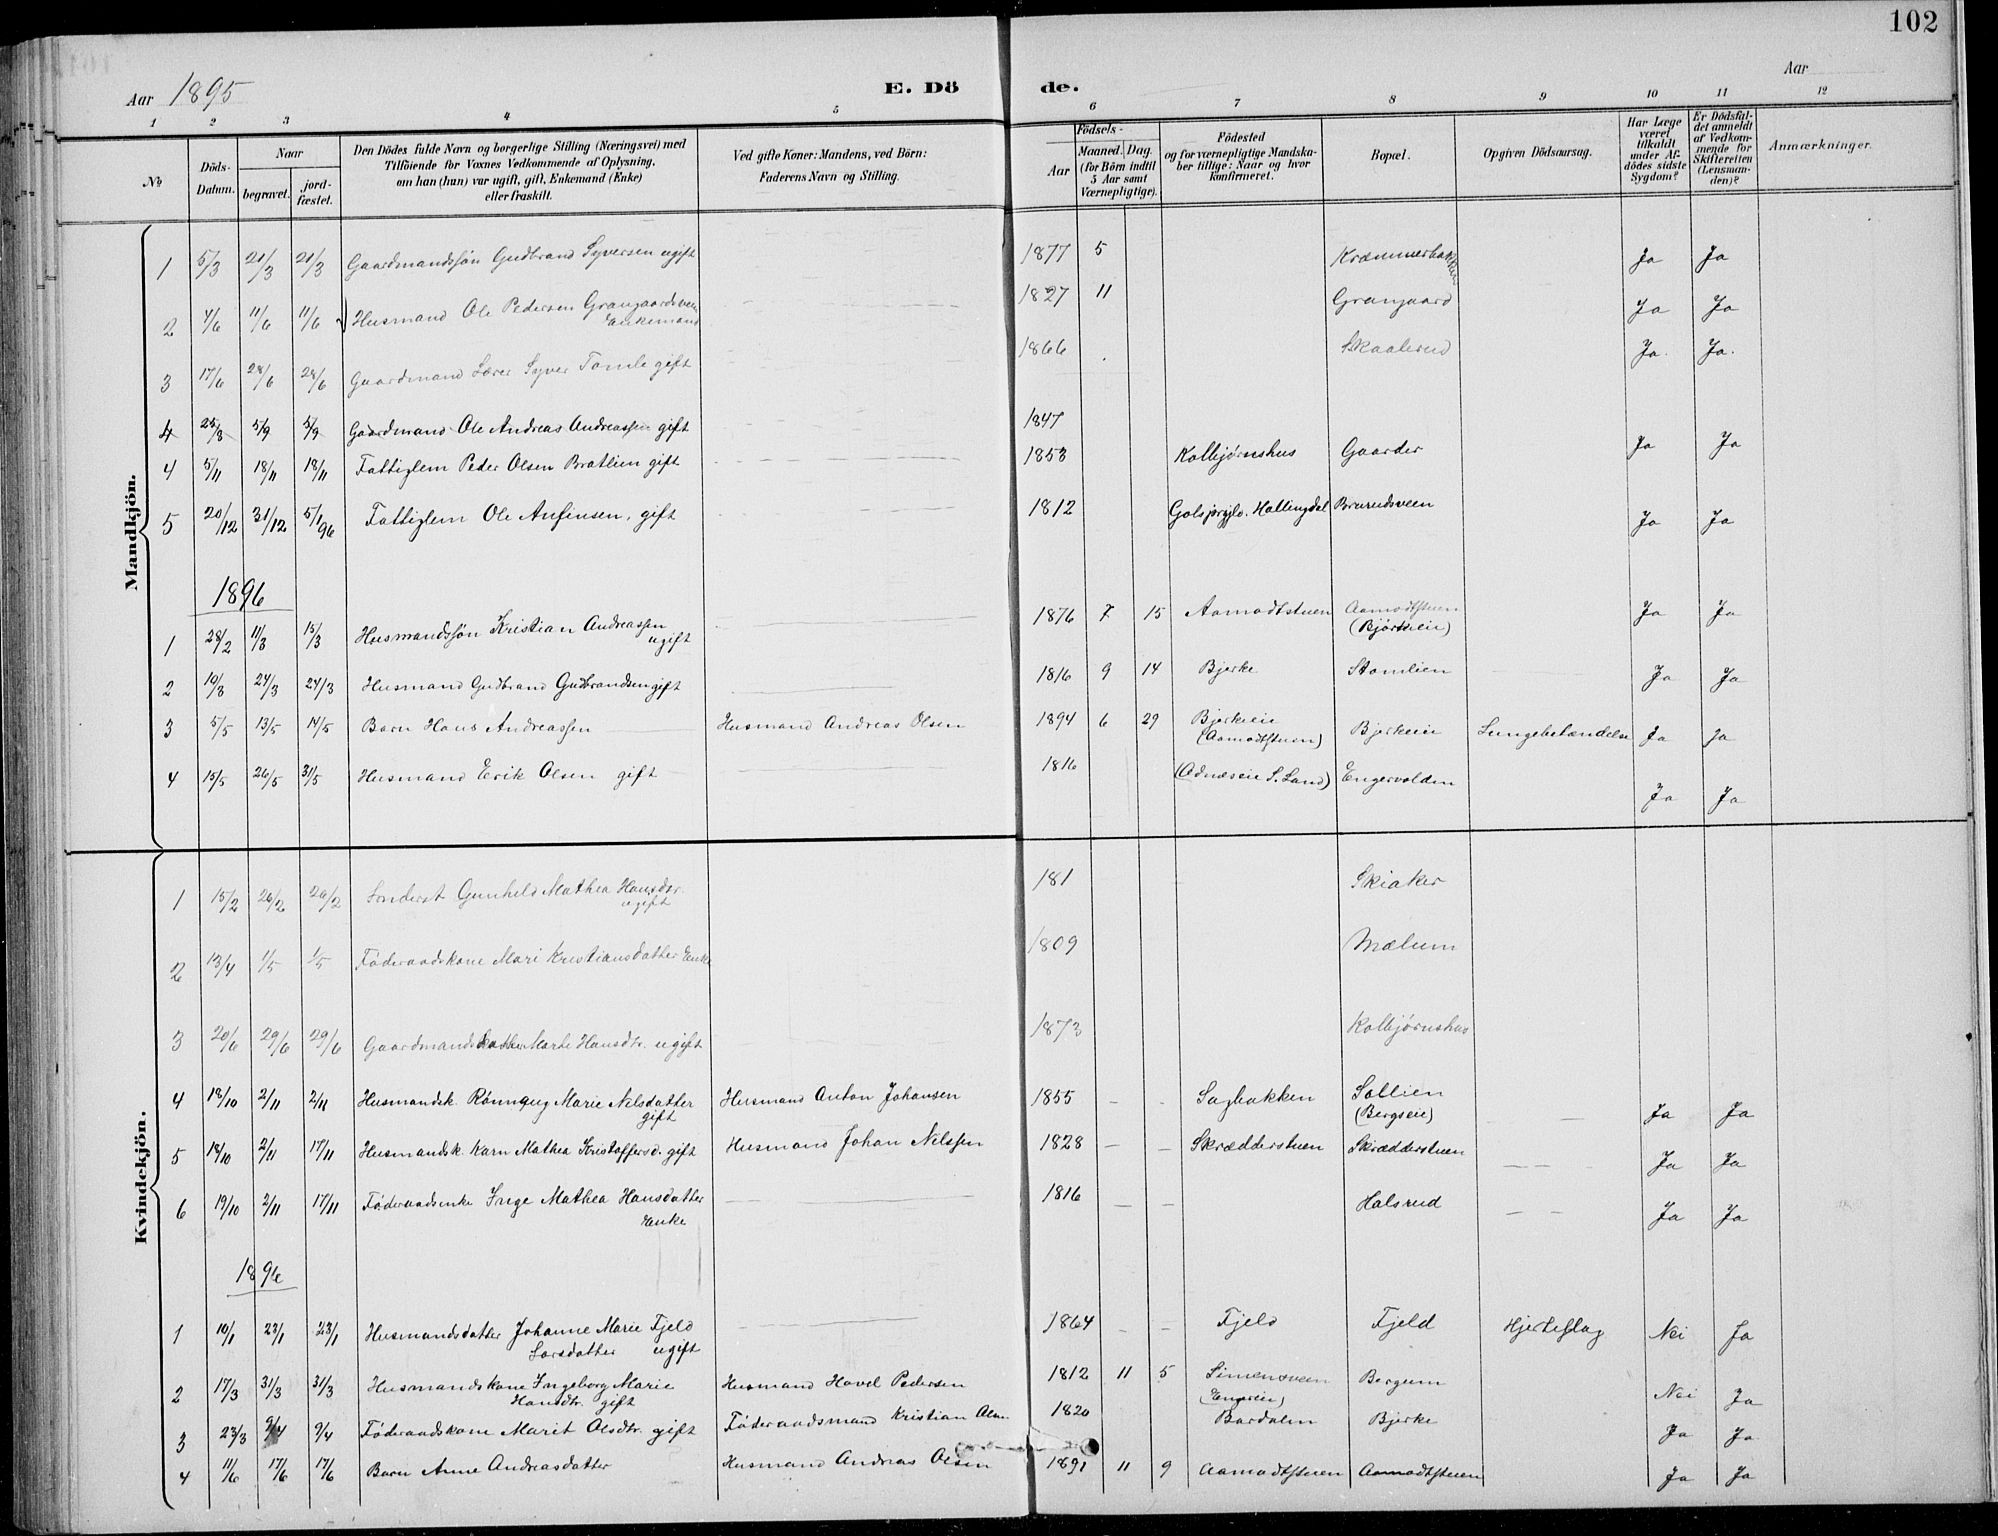 102
Aar 1895 E. Dö de. Aar
1 2 3 4 5 6 7 8 9 10 11 12
№ Döds-Datum. Naar begravet. jord-fæstet. Den Dödes fulde Navn og borgerlige Stilling (Næringsvei) med Tilföiende for Voxnes Vedkommende af Oplysning, om han (hun) var ugift, gift, Enkemand (Enke) eller fraskilt. Ved gifte Koner: Mandens, ved Börn: Faderens Navn og Stilling. Födsels- Aar Maaned. Dag. (for Börn indtil 5 Aar samt Værnepligtige). Födested og for værnepligtige Mandska-ber tillige: Naar og hvor konfirmeret. Bopæl. Opgiven Dödsaarsag. Har Læge været tilkaldt under Af-dödes sidste Sygdom? Er Dödsfal-det anmeldt af Vedkom-mende for Skifteretten (Lensman-den)? Anmærkninger.
Mandkjön.
1 5/3 21/3 21/3 Gaardmandssøn Gudbrand Syversen ugift 1877 5 Kræmmerbakken Ja Ja
2 4/6 11/6 11/6 Husmand Ole Pedersen Grangaardsveen Enkemand 1827 11 Grangaard Ja Ja
3 17/6 28/6 28/6 Gaardmand Lærer Syver Tomle gift 1866 Skaalerud Ja. Ja.
4 25/8 5/9 5/9 Gaardmand Ole Andreas Andreassen gift 1847 Ja Ja
4 5/11 18/11 18/11 Fattiglem Peder Olsen Bratlien gift 1853 Kolbjørnshus Gaarder
5 20/12 31/12 5/1 96 Fattiglem Ole Anfinsen, gift 1812 Golsprgjld. Hallingdal Brurudsveen Ja Ja
1896
1 28/2 11/3 15/3 Husmandssøn Kristian Andreassen ugift 1876 7 15 Aamodtstuen Aamodtstuen (Bjørkeie) Ja Ja
2 19/3 24/3 24/3 Husmand Gudbrand Gudbrandsen gift 1816 9 14 Bjerke Stomlien Ja Ja
3 5/5 13/5 14/5 Barn Hans Andreassen Husmand Andreas Olsen 1894 6 29 Bjerkeie (Aamodtstuen) Bjerkeie Lungebetændelse Ja Ja
4 15/5 26/5 31/5 Husmand Erik Olsen gift 1816 (Odnæseie S. Land) Engervolden Ja Ja
Kvindekjön.
1 15/2 26/2 29/2 Gunhild Mathea Hansdtr. ugift 181 Skiaker
2 13/4 1/5 1/5 Føderaadskone Mari Kristiansdatter Enke 1809 Mælum
3 20/6 29/6 29/6 Gaardmandsdatter Marte Hansdtr. ugift 1873 Kolbjørnshus
4 18/10 2/11 2/11 Husmandsk. Rønnaug Marie Nelsdatter gift Husmand Anton Johansen 1855 Sagbakken Sollien (Bergseie) Ja Ja
5 18/10 2/11 17/11 Husmandsk. Karn Mathea Kristoffersd. gift Husmand Johan Nelssen 1828 Skrædderstuen Skrædderstuen Ja Ja
6 19/10 2/11 17/11 Føderaadsenke Inge Mathea Hansdatter Enke 1816 Halsrud Ja Ja
1896
1 10/1 23/1 23/1 Husmandsdatter Johanne Marie Fjeld Larsdatter ugift 1864 Fjeld Fjeld Hjerteslag Nei Ja
2 17/3 31/3 31/3 Husmandskone Ingeborg Marie Hansdtr. gift Husmand Hovel Pedersen 1812 11 5 Simensveen (Engereie) Bergum Nei Ja
3 23/3 9/4 9/4 Føderaadskone Marit Olsdtr. gift Føderaadsmand Kristian Olsen 1820 Bardalen Bjerke Ja Ja
4 11/6 17/6 17/6 Barn Anne Andreasdatter Husmand Andreas Olsen 1891 11 9 Aamodtstuen Aamodtstuen Ja Ja